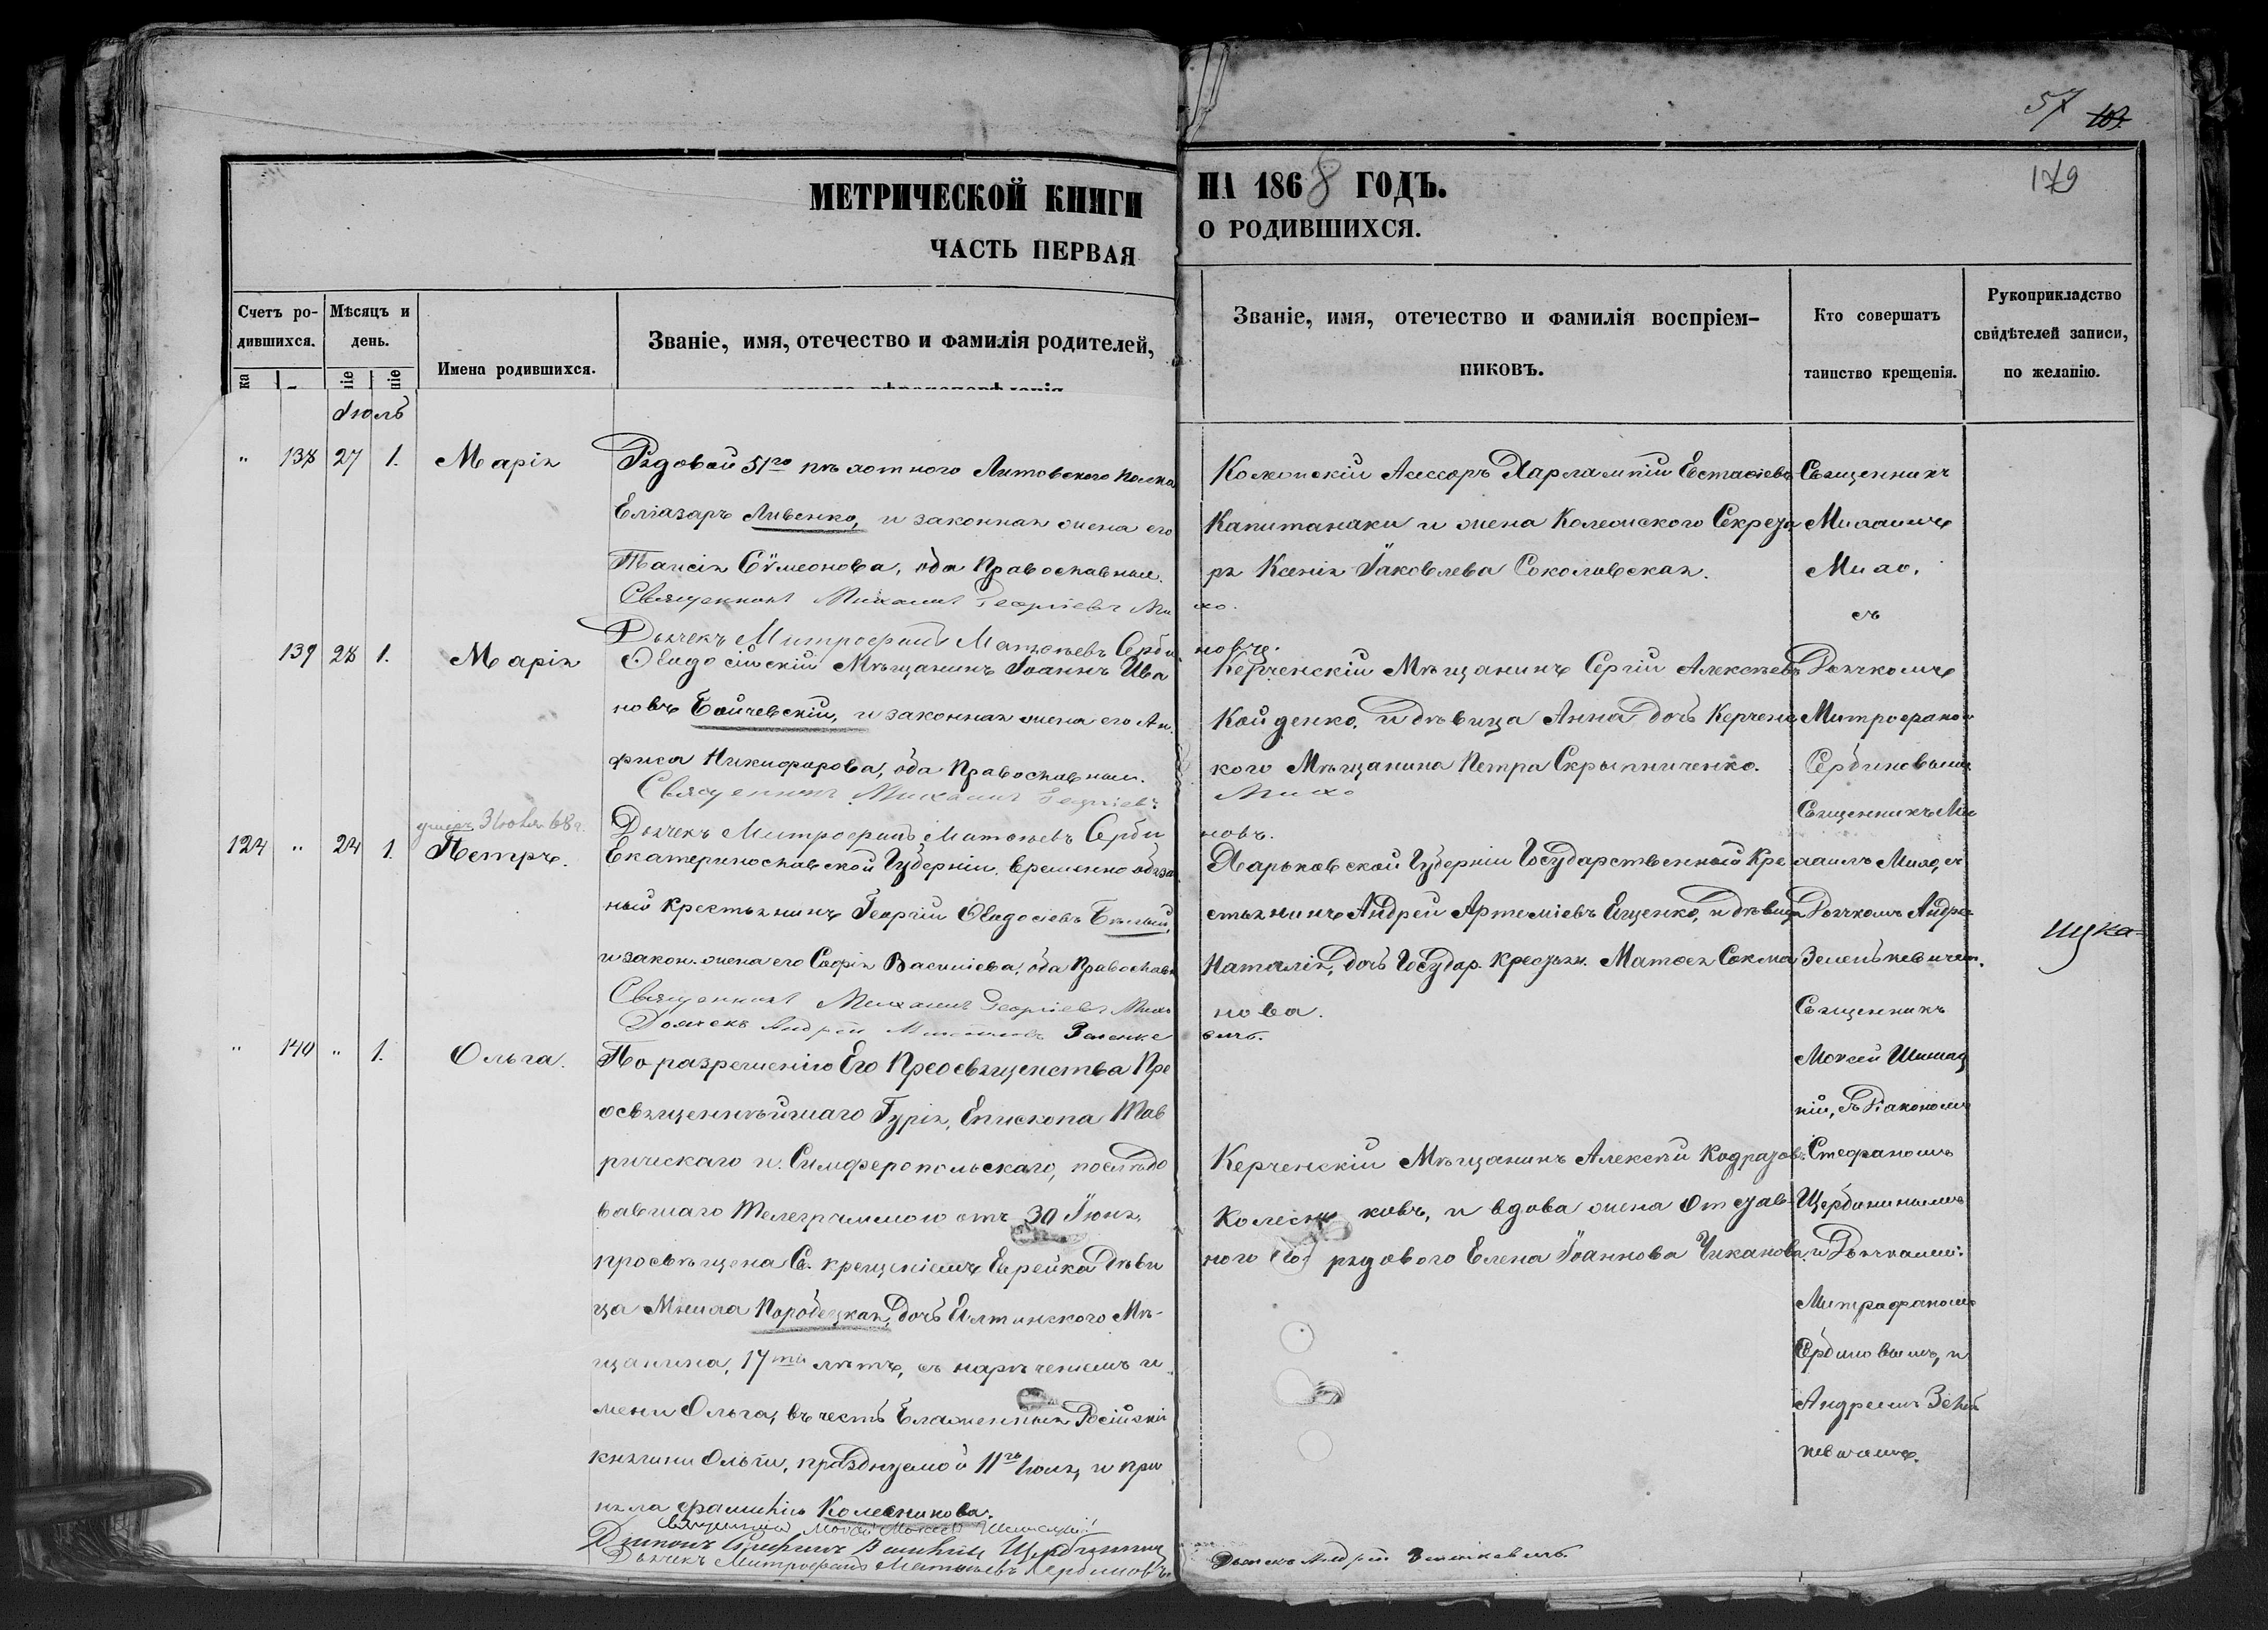 57 109.
179
МЕТРИЧЕСКОЙ КНИГИ НА 1868 ГОДЪ.
ЧАСТЬ ПЕРВАЯ О РОДИВШИХСЯ.
Счетъ ро-
дившихся.
Мѣсяцъ и
день.
Имена родившихся.
Званіе, имя, отечество и фамилія родителей,
Званіе, имя, отечество и фамилія воспріем-
никовъ.
Кто совершатъ
таинство крещенія.
Рукоприкладство
свидѣтелей записи,
по желанію.
Іюль
" 138 27 1. Марія
Рядовой 51го пѣхотного Литовского полка
Еліазаръ Ливенко, и законная жена его
Таисія Сѵмеонова, оба Православные.
Священникъ Михаилъ Георгіевъ Ми
хо.
Дьячекъ Митрофанъ Матѳѣевъ Серби
новъ.
Колежскій Ассесоръ Харлампій Евстаѳіевъ
Капитанаки и жена Колежского Секрета
ря Ксенія Іаковлева Соколовская.
Священникъ
Михаилъ
Михо,
съ
139 28 1. Марія
Ѳеодосійскій Мѣщанинъ Іоаннъ Ива
новъ Бойчевскій, и законная жена его Ан
фиса Никифорова, оба Православные.
Священникъ Михаилъ Георгіевъ
Михо
Дьячекъ Митрофанъ Матѳѣевъ Серби
новъ.
Керченскій Мѣщанинъ Сергій Алексѣевъ
Койденко, и дѣвица Анна дочь Керченс
кого Мѣщанина Петра Скрыпниченко.
Дьячкомъ
Митрофаном
Сербиновымъ
Священникъ Ми
хаилъ Михо, съ
Дьячкомъ Андре
Зеленкевичем.
124 " 24 1. Петръ.
Екатеринославской Губерніи, временно обяза
ный крестьянинъ Георгій Ѳеодосіевъ Бѣлый,
и закон. жена его Софія Василіева, оба Православн
Священникъ Михаилъ Георгіевъ Михо
Дьячекъ Андрей Зеленке
вичъ.
Харьковской Губерніи Государственный Кре
стьянинъ Андрей Артеміевъ Ещенко, и дѣвица
Наталія, дочь Государ. крестьян. Матѳея Сокма
нова.
" 140 " 1. Ольга.
По разрешенію Его Преосвященства Пре
освященнѣйшаго Гурія, Епископа Тав
рическаго и Симферопольскаго, послѣдо
вавшаго Телеграммою отъ 30 Іюня,
просвѣщена Св. крещеніемъ Еврейка Дѣви
ца Мниха Поробецкая, дочь Ялтинского Мѣ-
щанина, 17ти лѣтъ, съ нареченіемъ и
мени Ольга, въ честь Блаженныя Россійскія
княгини Ольги, празднуемой 11го Іюля, и при
няла фамилію Колесникова.
Дьячекъ Митрофанъ Матѳѣевъ Сербиновъ
Дьячекъ Андрей Зеленкевичъ
Керченскій Мѣщанинъ Алексѣй Кодратов
Колесни ковъ, и вдова жена Отстав
ного рядового Елена Іоаннова Чиканова
Священникъ
Моисей
кій, съ Діакономъ
Стефаномъ
Щербининымъ
и Дьячками:
Митрофаномъ
Сербиновымъ, и
Андреемъ Зелен
кевичемъ.